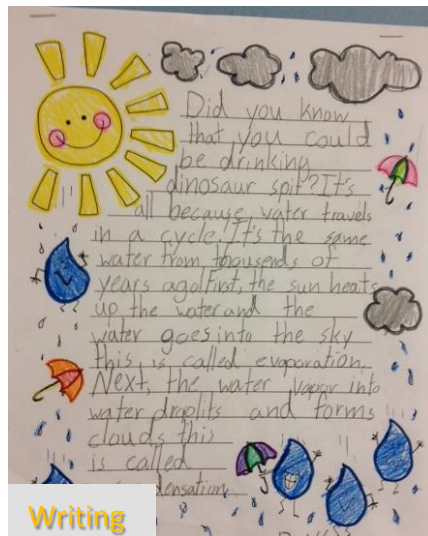 Did you know
that you could
be drinking
dinosaur spit? It's
all because water travels
in a cycle! It's the same
water from thousends of
years ago! First, the sun heats
up the water and the
water goes into the sky
this is called evaporation.
Next, the water vapor into
water droplits and forms
clouds this
is called
densation
Writing